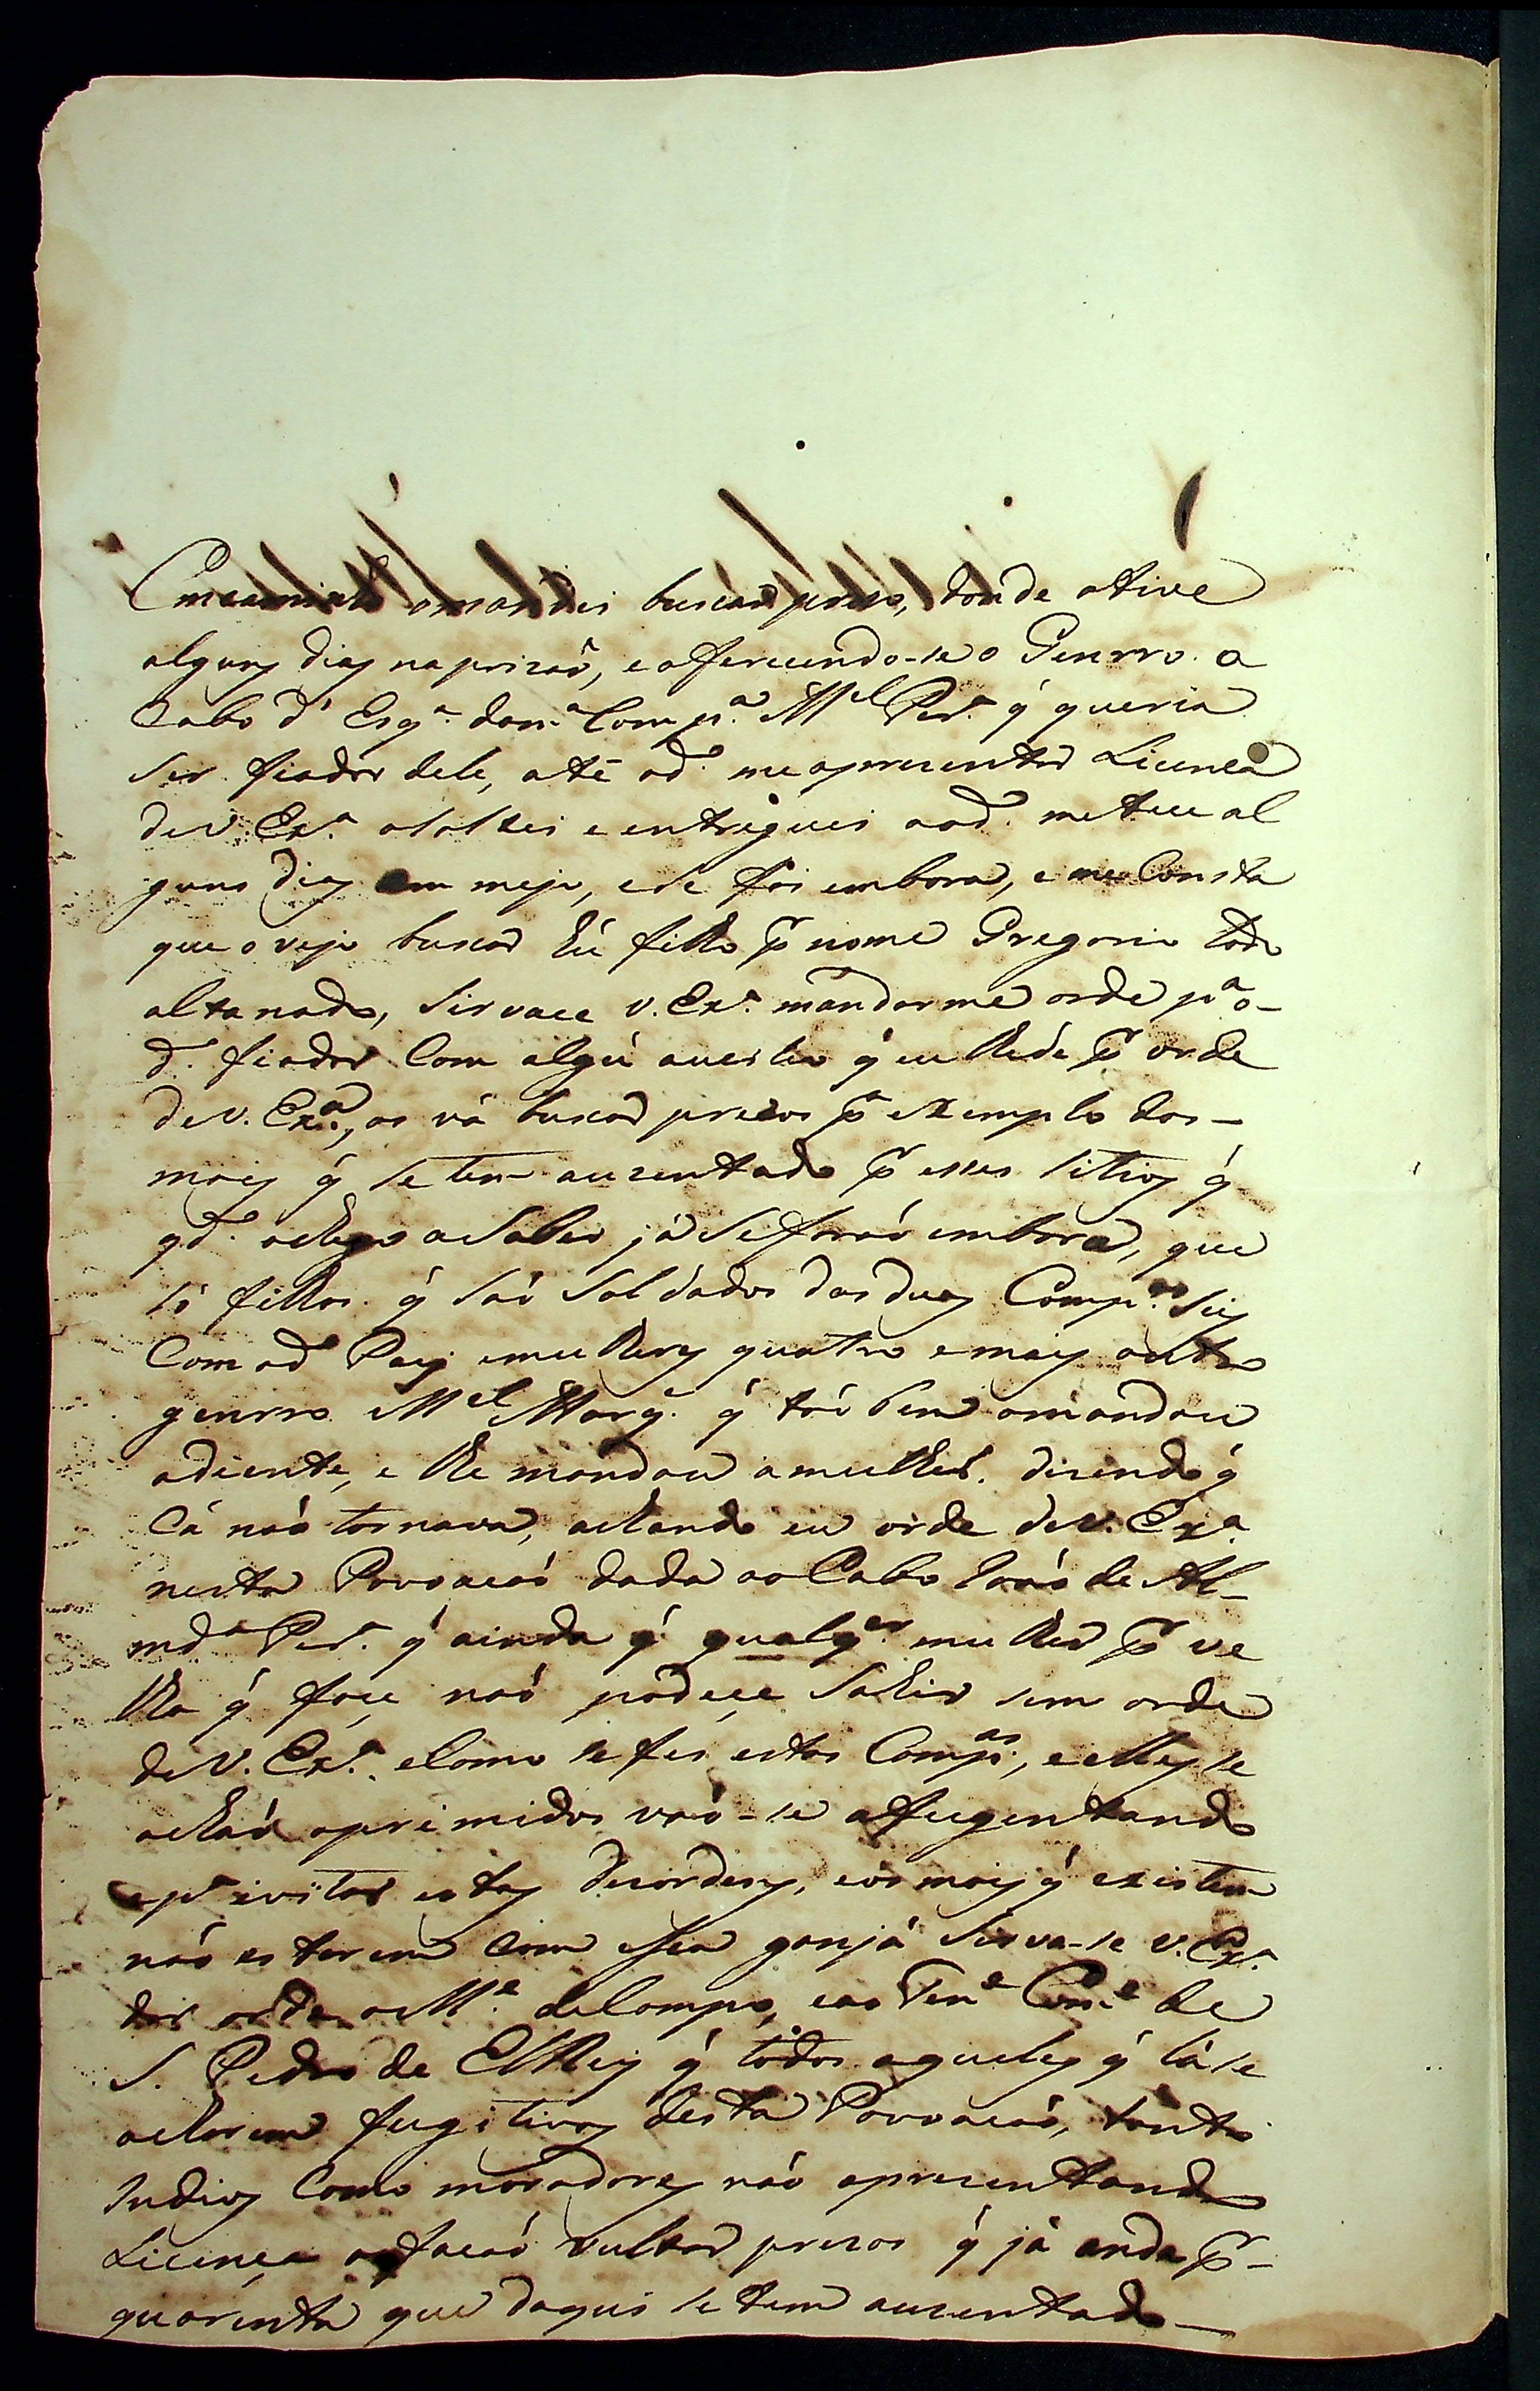 Emcaminho omandei buscar prezo, donde otive
alguns dias naprizaõ, e offerecendo-se o Genrro o
Cabo d' Esqª. damª Compª. Mel Perª. q̃ queria
ser fiador dele, até od. me aprezentar Licença
de V. Exª. osoltei e entreguei aod. meteu al
guns dias em mejo, e se foi embora, e me Consta
que o vejo buscar hũ filho p̃ nome Gregorio todo
altanado, Sirvace V. Exª. mandarme orde pª o-
d. fiador Com algũ auxilio q̃ eu lhe de p̃ orde
de V. Exª., os vá buscar prezos p̃ exemplo dos-
mais q̃ se tem auzentado p̃ esses sitios q̃
qd.º chego a Saber já Seforaó embora, que
só filhos q̃ saó Soldados das duas Comp.as Seis
Com od. Pay emulheres quatro e mais outro
genrro Mel Marq̃. q̃ taó bem omandou
adiente, e lhe mandou amulher. dizendo q̃
Cá naó tornava, achando eu orde de V. Exª.
nesta Povoacaó dada ao Cabo Joaó de Al-
mdª Perª. q̃ ainda q̃ qualq.er mulher p̃ ve
lha q̃ foce, naó podece Sahir sem orde
de V. Exª. eComo se fes estas Comp.as, e elles se
achaó oprimidos vaó-se afugentando
e pª evitar estas dezordens, eos mais q̃ existem
naó estarem Com essa ganja Sirva-se V. Exª.
dar orde a Me. de Campo, eao Tene Come de
S. Pedro de ElRey q̃ tôdos aqueles q̃ lá se
acharem fugitivos desta Povoacaó, tanto
Indios Como moradores naó aprezentando
Licença os facaó voltar prezos q̃ já anda p̃-
quarenta que daqui se tem auzentado-